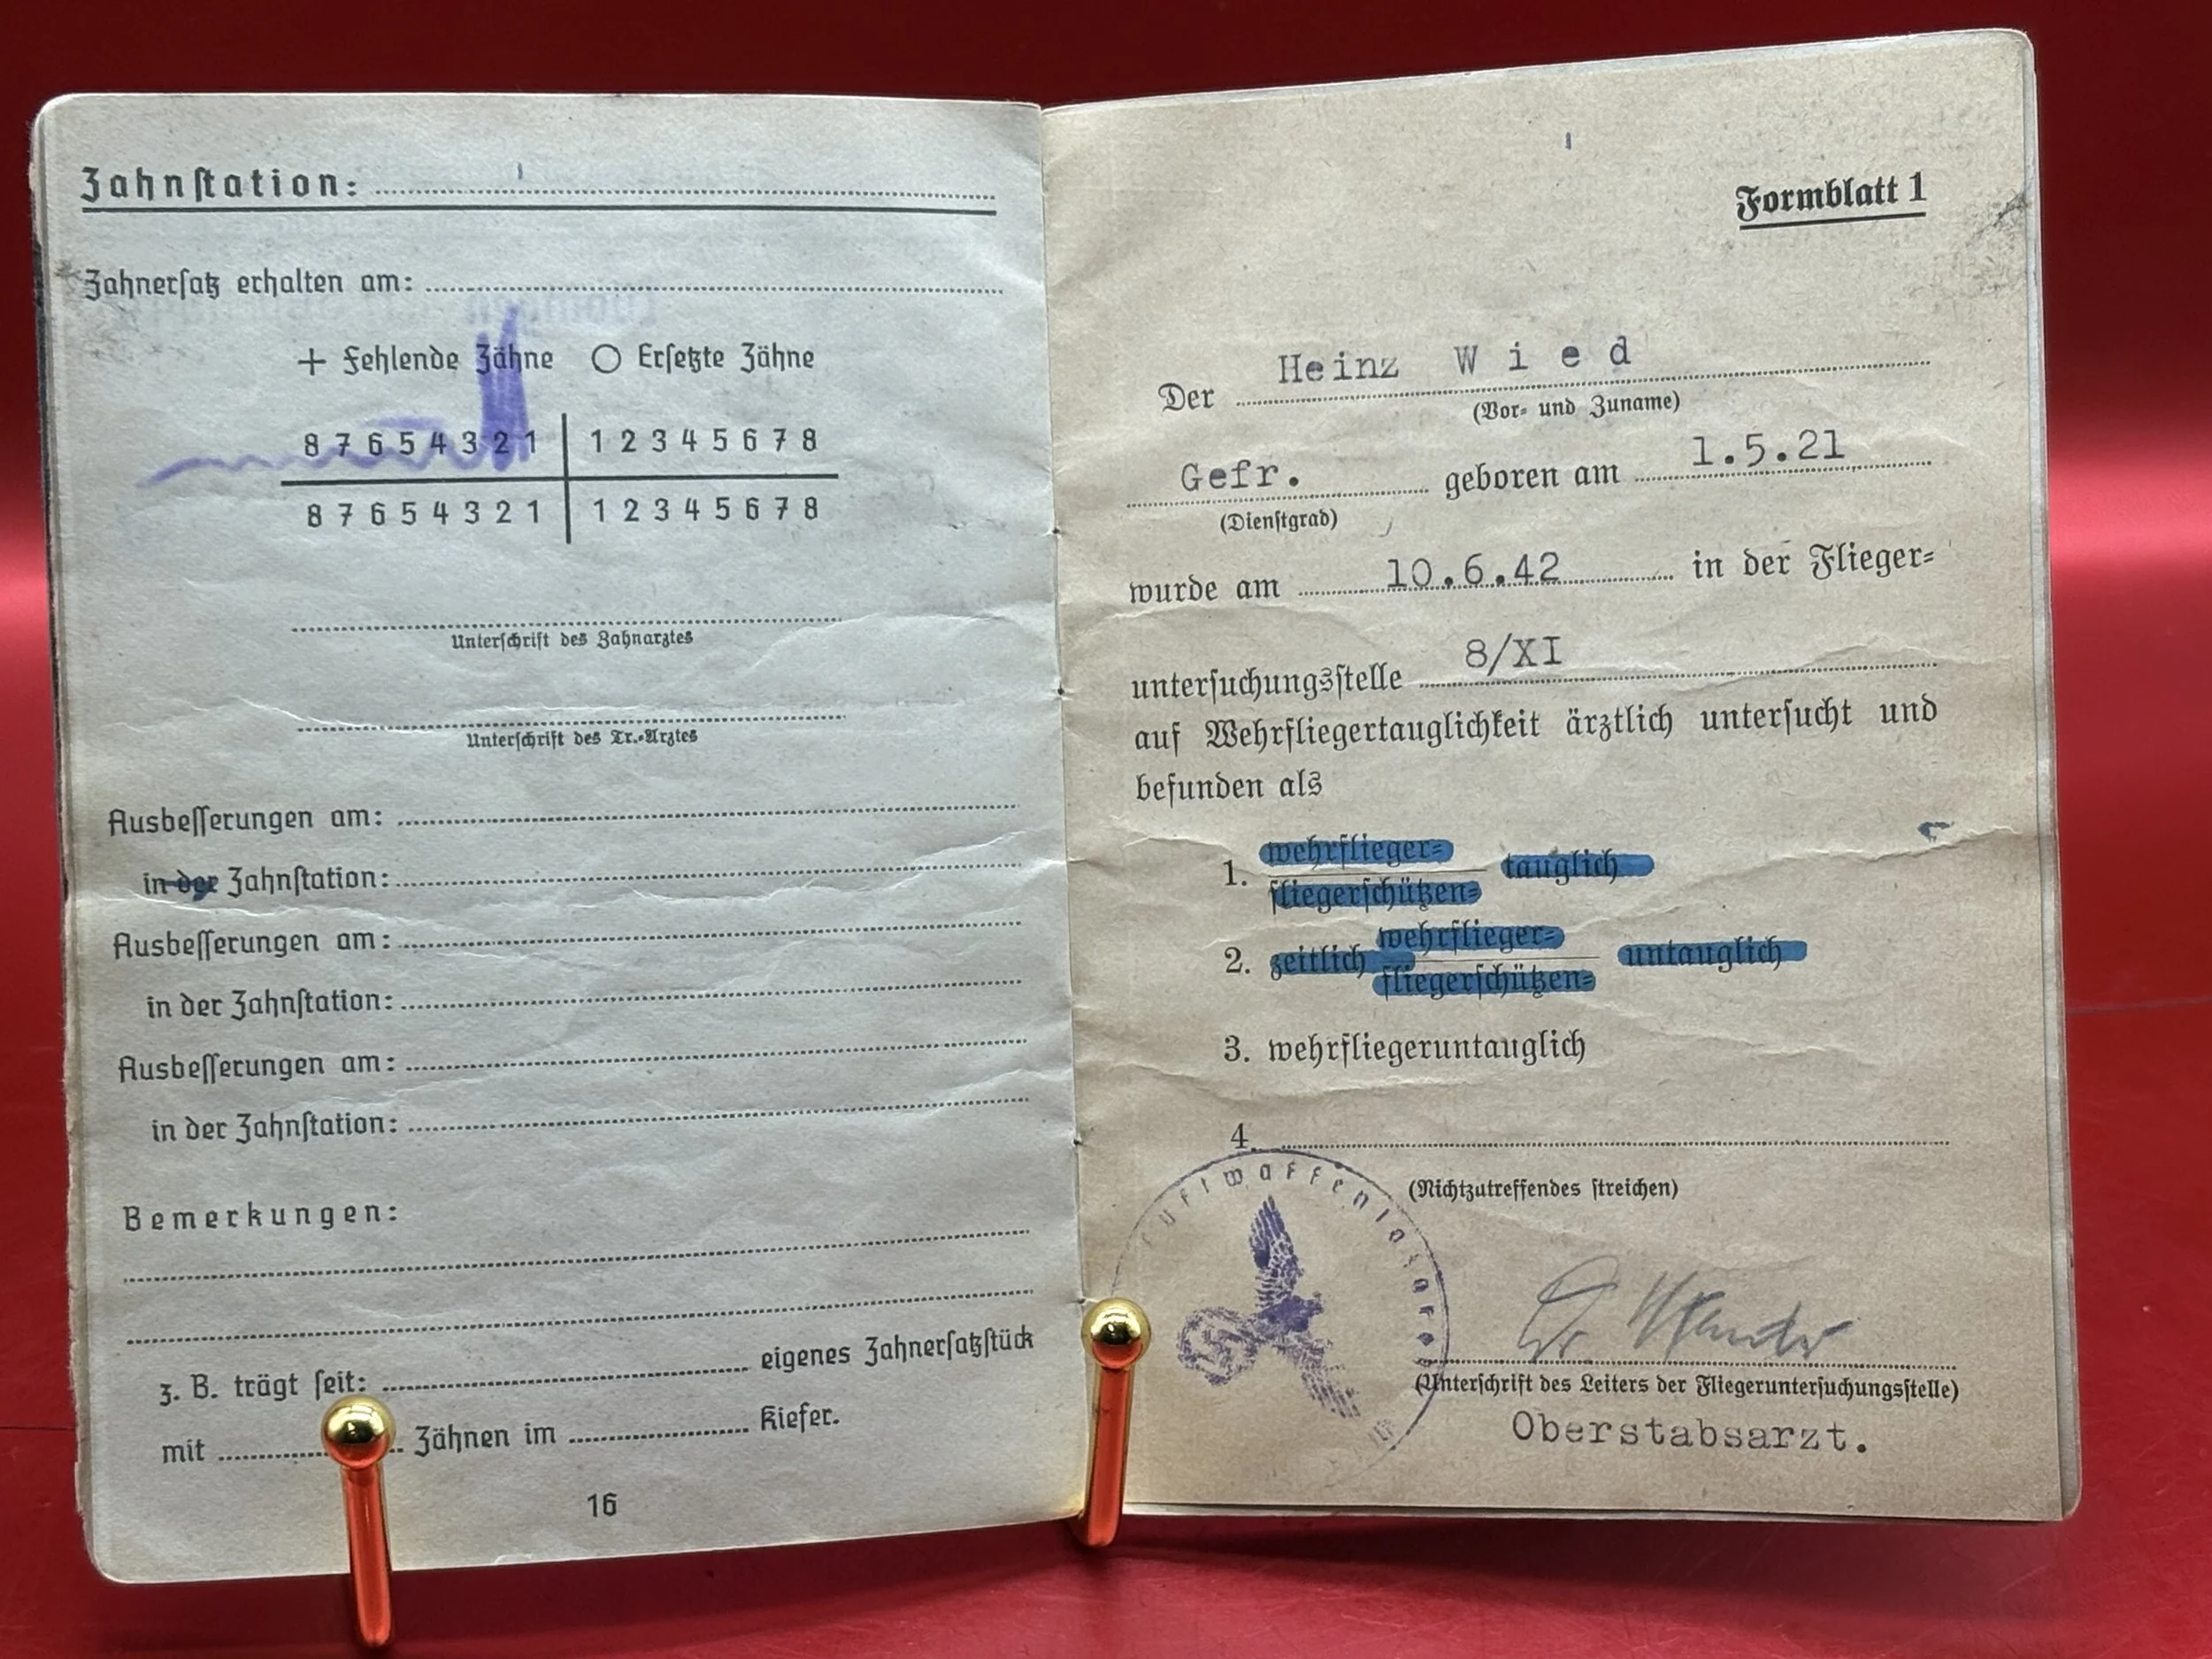 Zahnstation:
Zahnersatz erhalten am:
+ Fehlende Zähne ○ Ersetzte Zähne
8 7 6 5 4 3 2 1 | 1 2 3 4 5 6 7 8
8 7 6 5 4 3 2 1 | 1 2 3 4 5 6 7 8
Unterschrift des Zahnarztes
Unterschrift des Tr.-Arztes
Ausbesserungen am:
in der Zahnstation:
Ausbesserungen am:
in der Zahnstation:
Ausbesserungen am:
in der Zahnstation:
Bemerkungen:
z. B. trägt seit: eigenes Zahnersatzstück
mit Zähnen im Kiefer.
16
Formblatt 1
Der Heinz Wied
(Vor- und Zuname)
Gefr. geboren am 1.5.21
(Dienstgrad)
wurde am 10.6.42 in der Flieger-
untersuchungsstelle 8/XI
auf Wehrfliegertauglichkeit ärztlich untersucht und
befunden als
1. wehrflieger- tauglich
fliegerschützen-
2. zeitlich wehrflieger- untauglich
fliegerschützen-
3. wehrfliegeruntauglich
4.
(Nichtzutreffendes streichen)
Dr.
(Unterschrift des Leiters der Fliegeruntersuchungsstelle)
Oberstabsarzt.